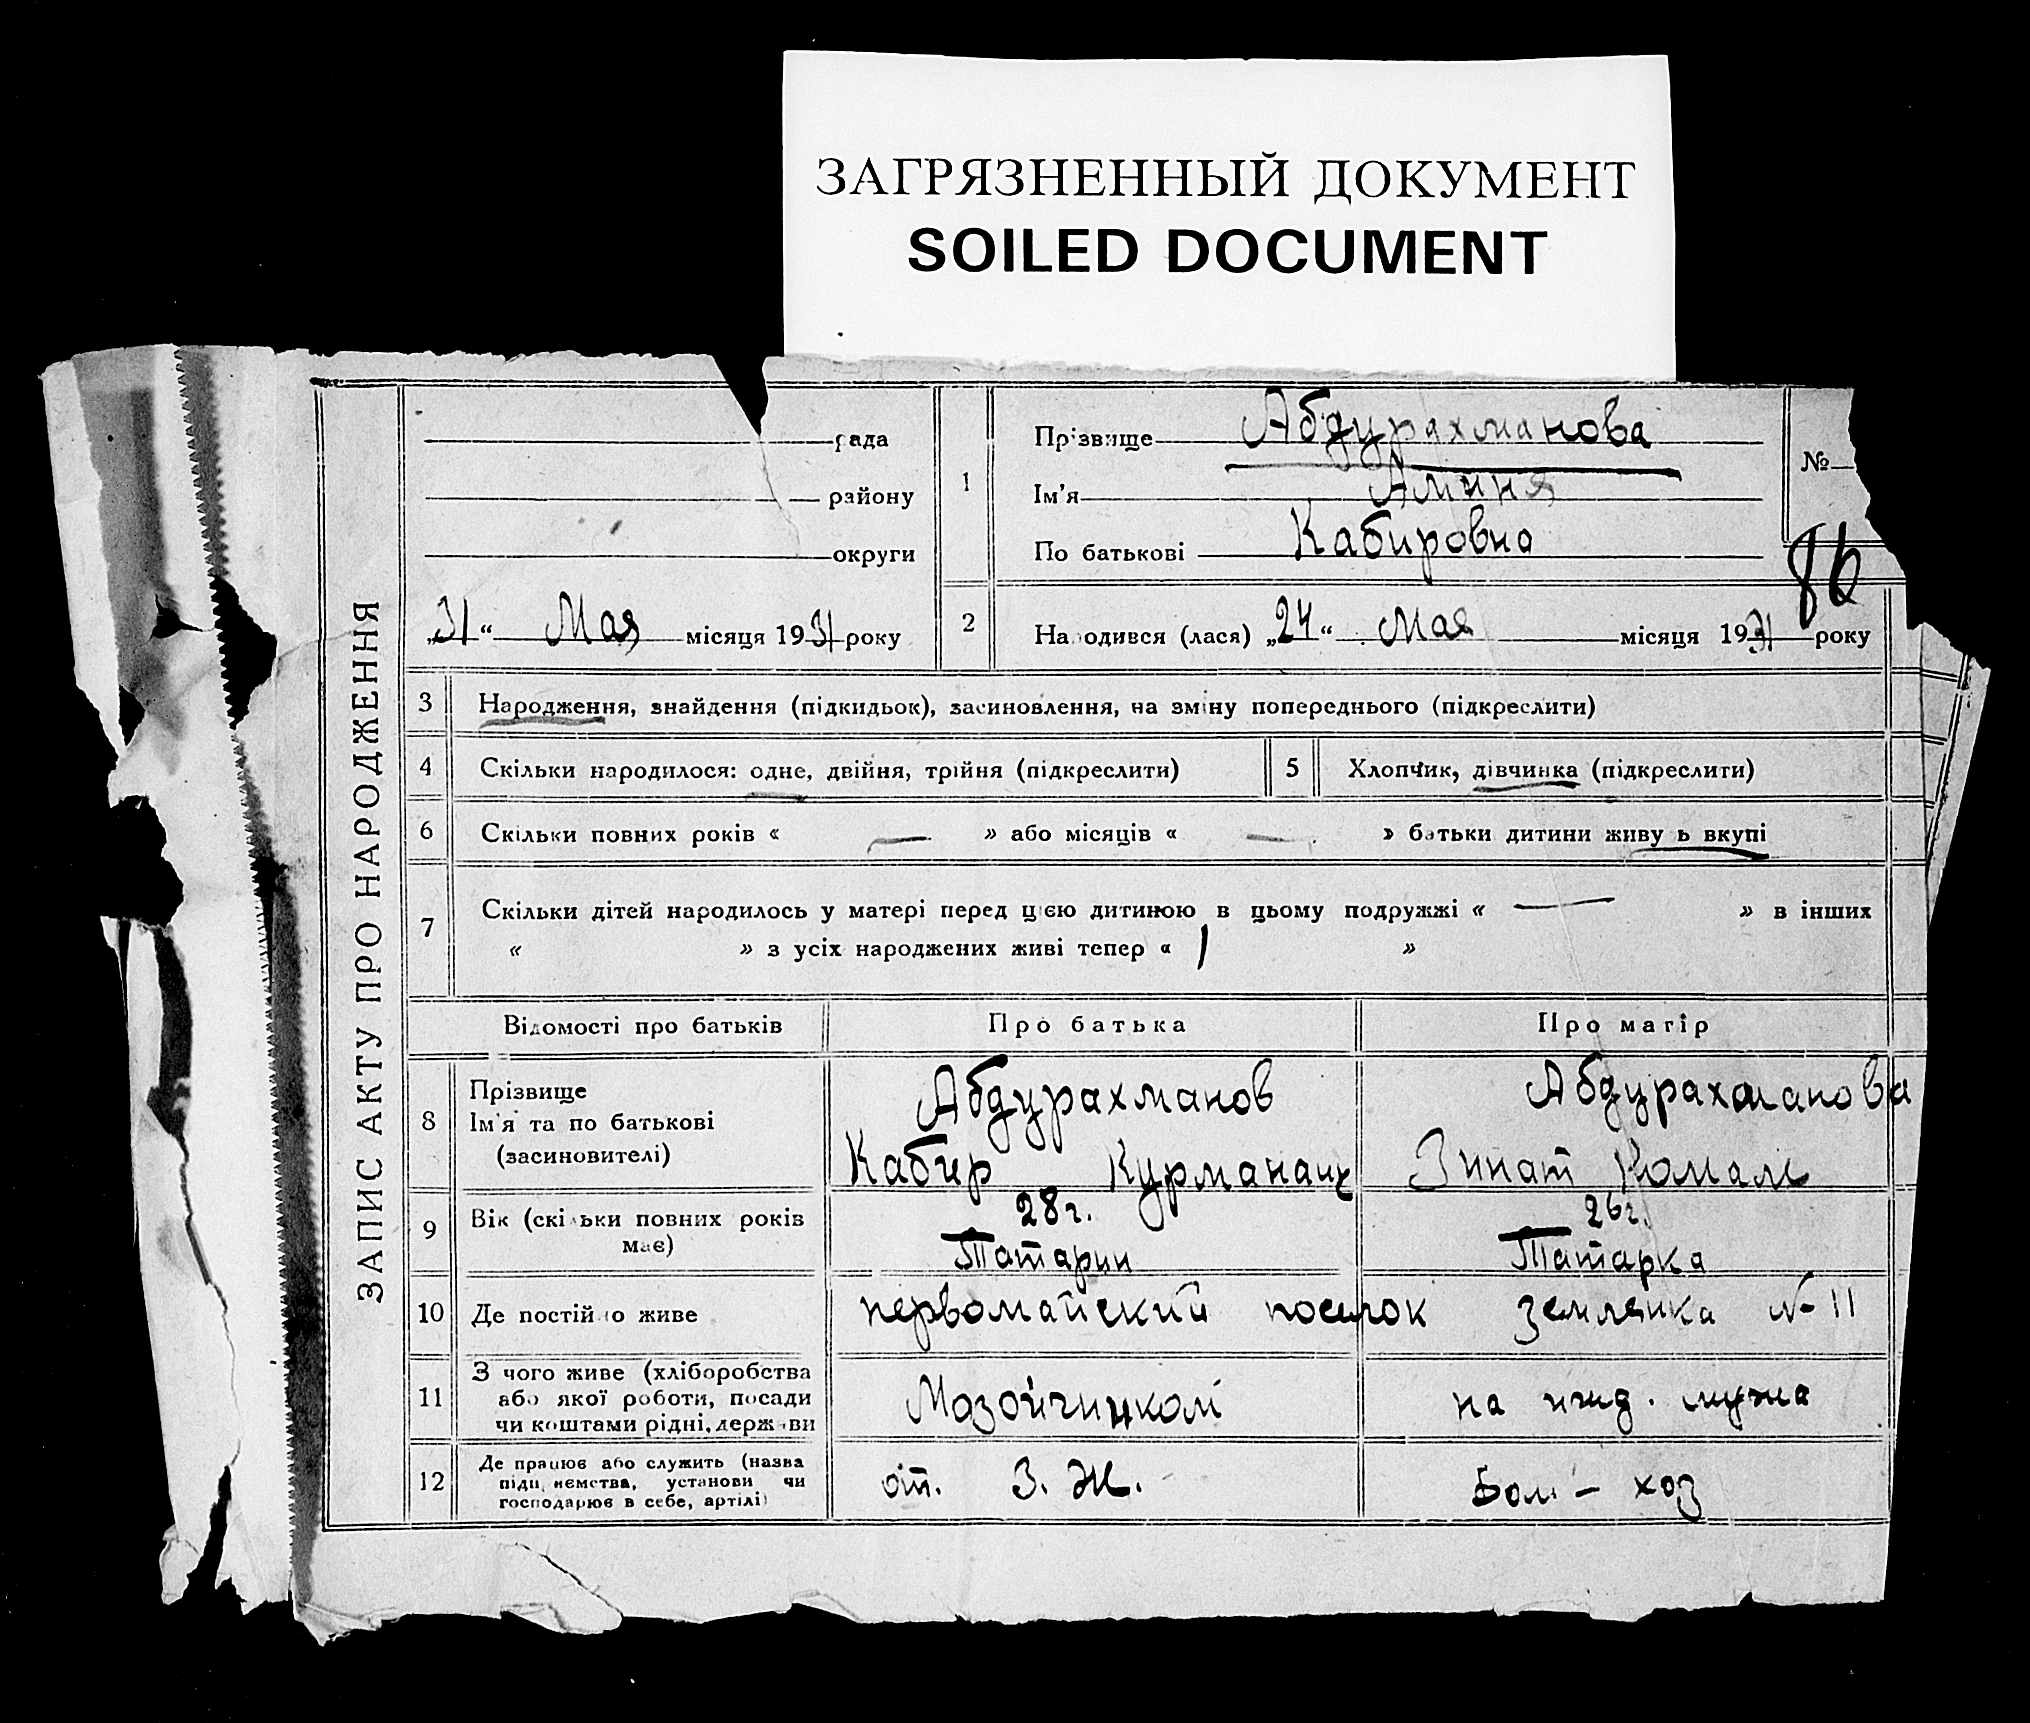 ЗАГРЯЗНЕННЫЙ ДОКУМЕНТ
SOILED DOCUMENT
ЗАПИС АКТУ ПРО НАРОДЖЕННЯ
рада
району
округи
„31“ Мая місяця 1931 року
1
Прізвище Абдурахманова
Ім'я Аминя
По батькові Кабировна
№
86
2
Народився (лася) „24“ Мая місяця 1931 року
3 Народження, знайдення (підкидьок), засиновлення, на зміну попереднього (підкреслити)
4 Скільки народилося: одне, двійня, трійня (підкреслити)
5 Хлопчик, дівчинка (підкреслити)
6 Скільки повних років « — » або місяців « — » батьки дитини живуть вкупі
7 Скільки дітей народилось у матері перед цією дитиною в цьому подружжі « — » в інших
« » з усіх народжених живі тепер « 1 »
Відомості про батьків
Про батька
Про матір
8 Прізвище
Ім'я та по батькові
(засиновителі)
Абдурахманов
Кабир
Абдурахманова
Зинат
9 Вік (скільки повних років
має)
28 г.
Татарин
26 г.
Татарка
10 Де постійно живе
первомайский поселок землянка №11
11 З чого живе (хліборобства
або якої роботи, посади
чи коштами рідні, держави
на ижд. мужа
12 Де працює або служить (назва
підприємства, установи чи
господарює в себе, артілі)
от. З. Ж.
Дом-хоз